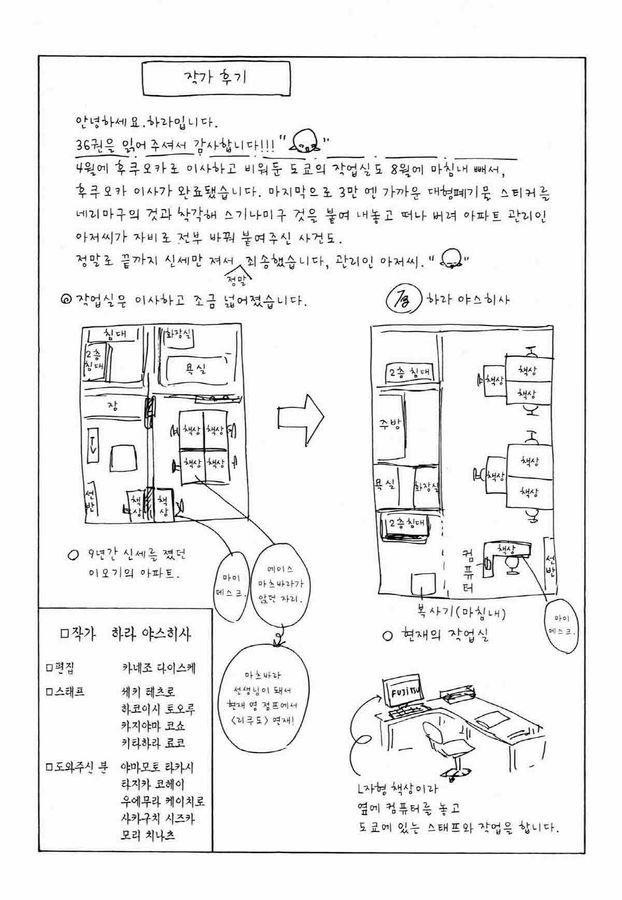 작가 후기
안녕하세요. 하라입니다.
36권을 읽어 주셔서 감사합니다!!!
4월에 후쿠오카로 이사하고 비워둔 도쿄의 작업실도 8월에 마침내 빼서,
후쿠오카 이사가 완료됐습니다. 마지막으로 3만 엔 가까운 대형폐기물 스티커를
네리마구의 것과 착각해 스기나미구 것을 붙여 내놓고 떠나 버려 아파트 관리인
아저씨가 자비로 전부 바꿔 붙여주신 사건도.
정말로 끝까지 신세만 져서 죄송했습니다, 관리인 아저씨.
정말
작업실은 이사하고 조금 넓어졌습니다.
7/8 하라 야스히사
침대
2층 침대
화장실
욕실
장
책상 책상
책상 책상
선반
책상
책상
9년간 신세를 졌던
이오기의 아파트.
마이 데스크.
에이스
마츠바라가
앉던 자리.
마츠바라
선생님이 돼서
현재 영 점프에서
<리쿠도> 연재!
2층 침대
주방
욕실
화장실
2층침대
책상
책상
책상
책상
책상
책상
컴퓨터
책상
선반
복사기(마침내)
마이 데스크.
현재의 작업실
FUJITSU
L자형 책상이라
옆에 컴퓨터를 놓고
도쿄에 있는 스태프와 작업을 합니다.
□작가 하라 야스히사
□편집 카네조 다이스케
□스태프 세키 테츠로
하코이시 토오루
카지야마 코쇼
키타하라 료코
□도와주신 분 야마모토 타카시
타지카 코헤이
우에무라 케이치로
사카구치 시즈카
모리 치나츠